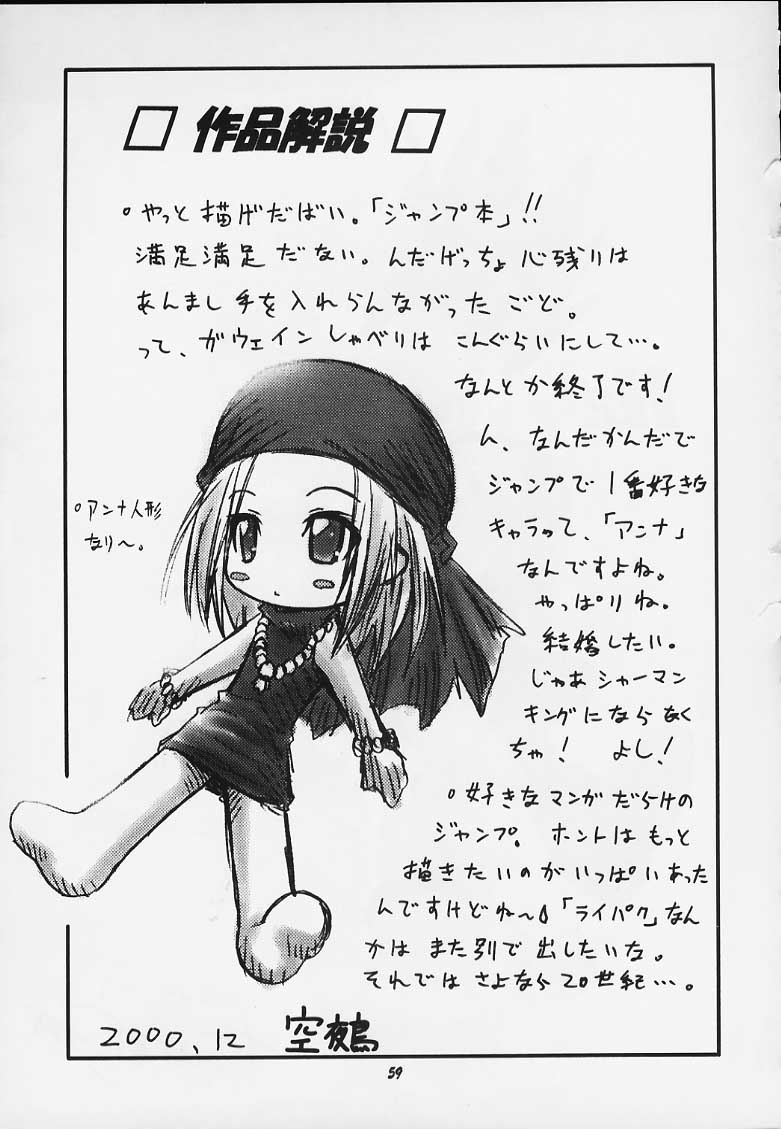 □ 作品解説 □
○やっと描げだばい。「ジャンプ本」!!
満足満足だない。んだげっちょ心残りは
あんまし手を入れらんながったごど。
って、ガウェインしゃべりはこんぐらいにして…。
なんとか終了です!
ん、なんだかんだで
ジャンプで1番好きな
キャラって、「アンナ」
なんですよね。
やっぱりね。
結婚したい。
じゃあシャーマン
キングにならなく
ちゃ! よし!
○アンナ人形
なり〜。
○好きなマンガだらけの
ジャンプ。ホントはもっと
描きたいのがいっぱいあった
んですけどね〜「ライパク」なん
かはまた別で出したいな。
それではさよなら20世紀…。
2000.12 空鵺
59